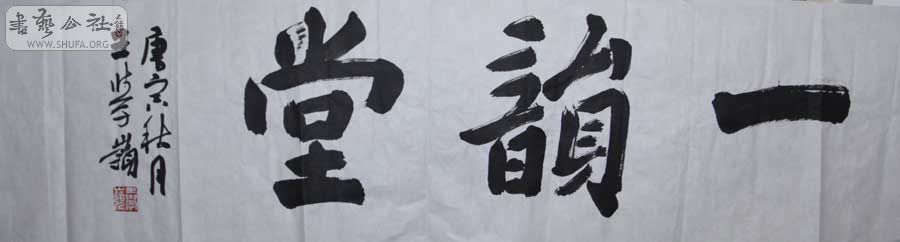 一韻堂
庚寅秋月
学嶺
書藝公社
WWW.SHUFA.ORG